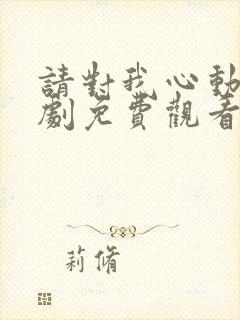 請對我心動
劇免費觀看
莉脩